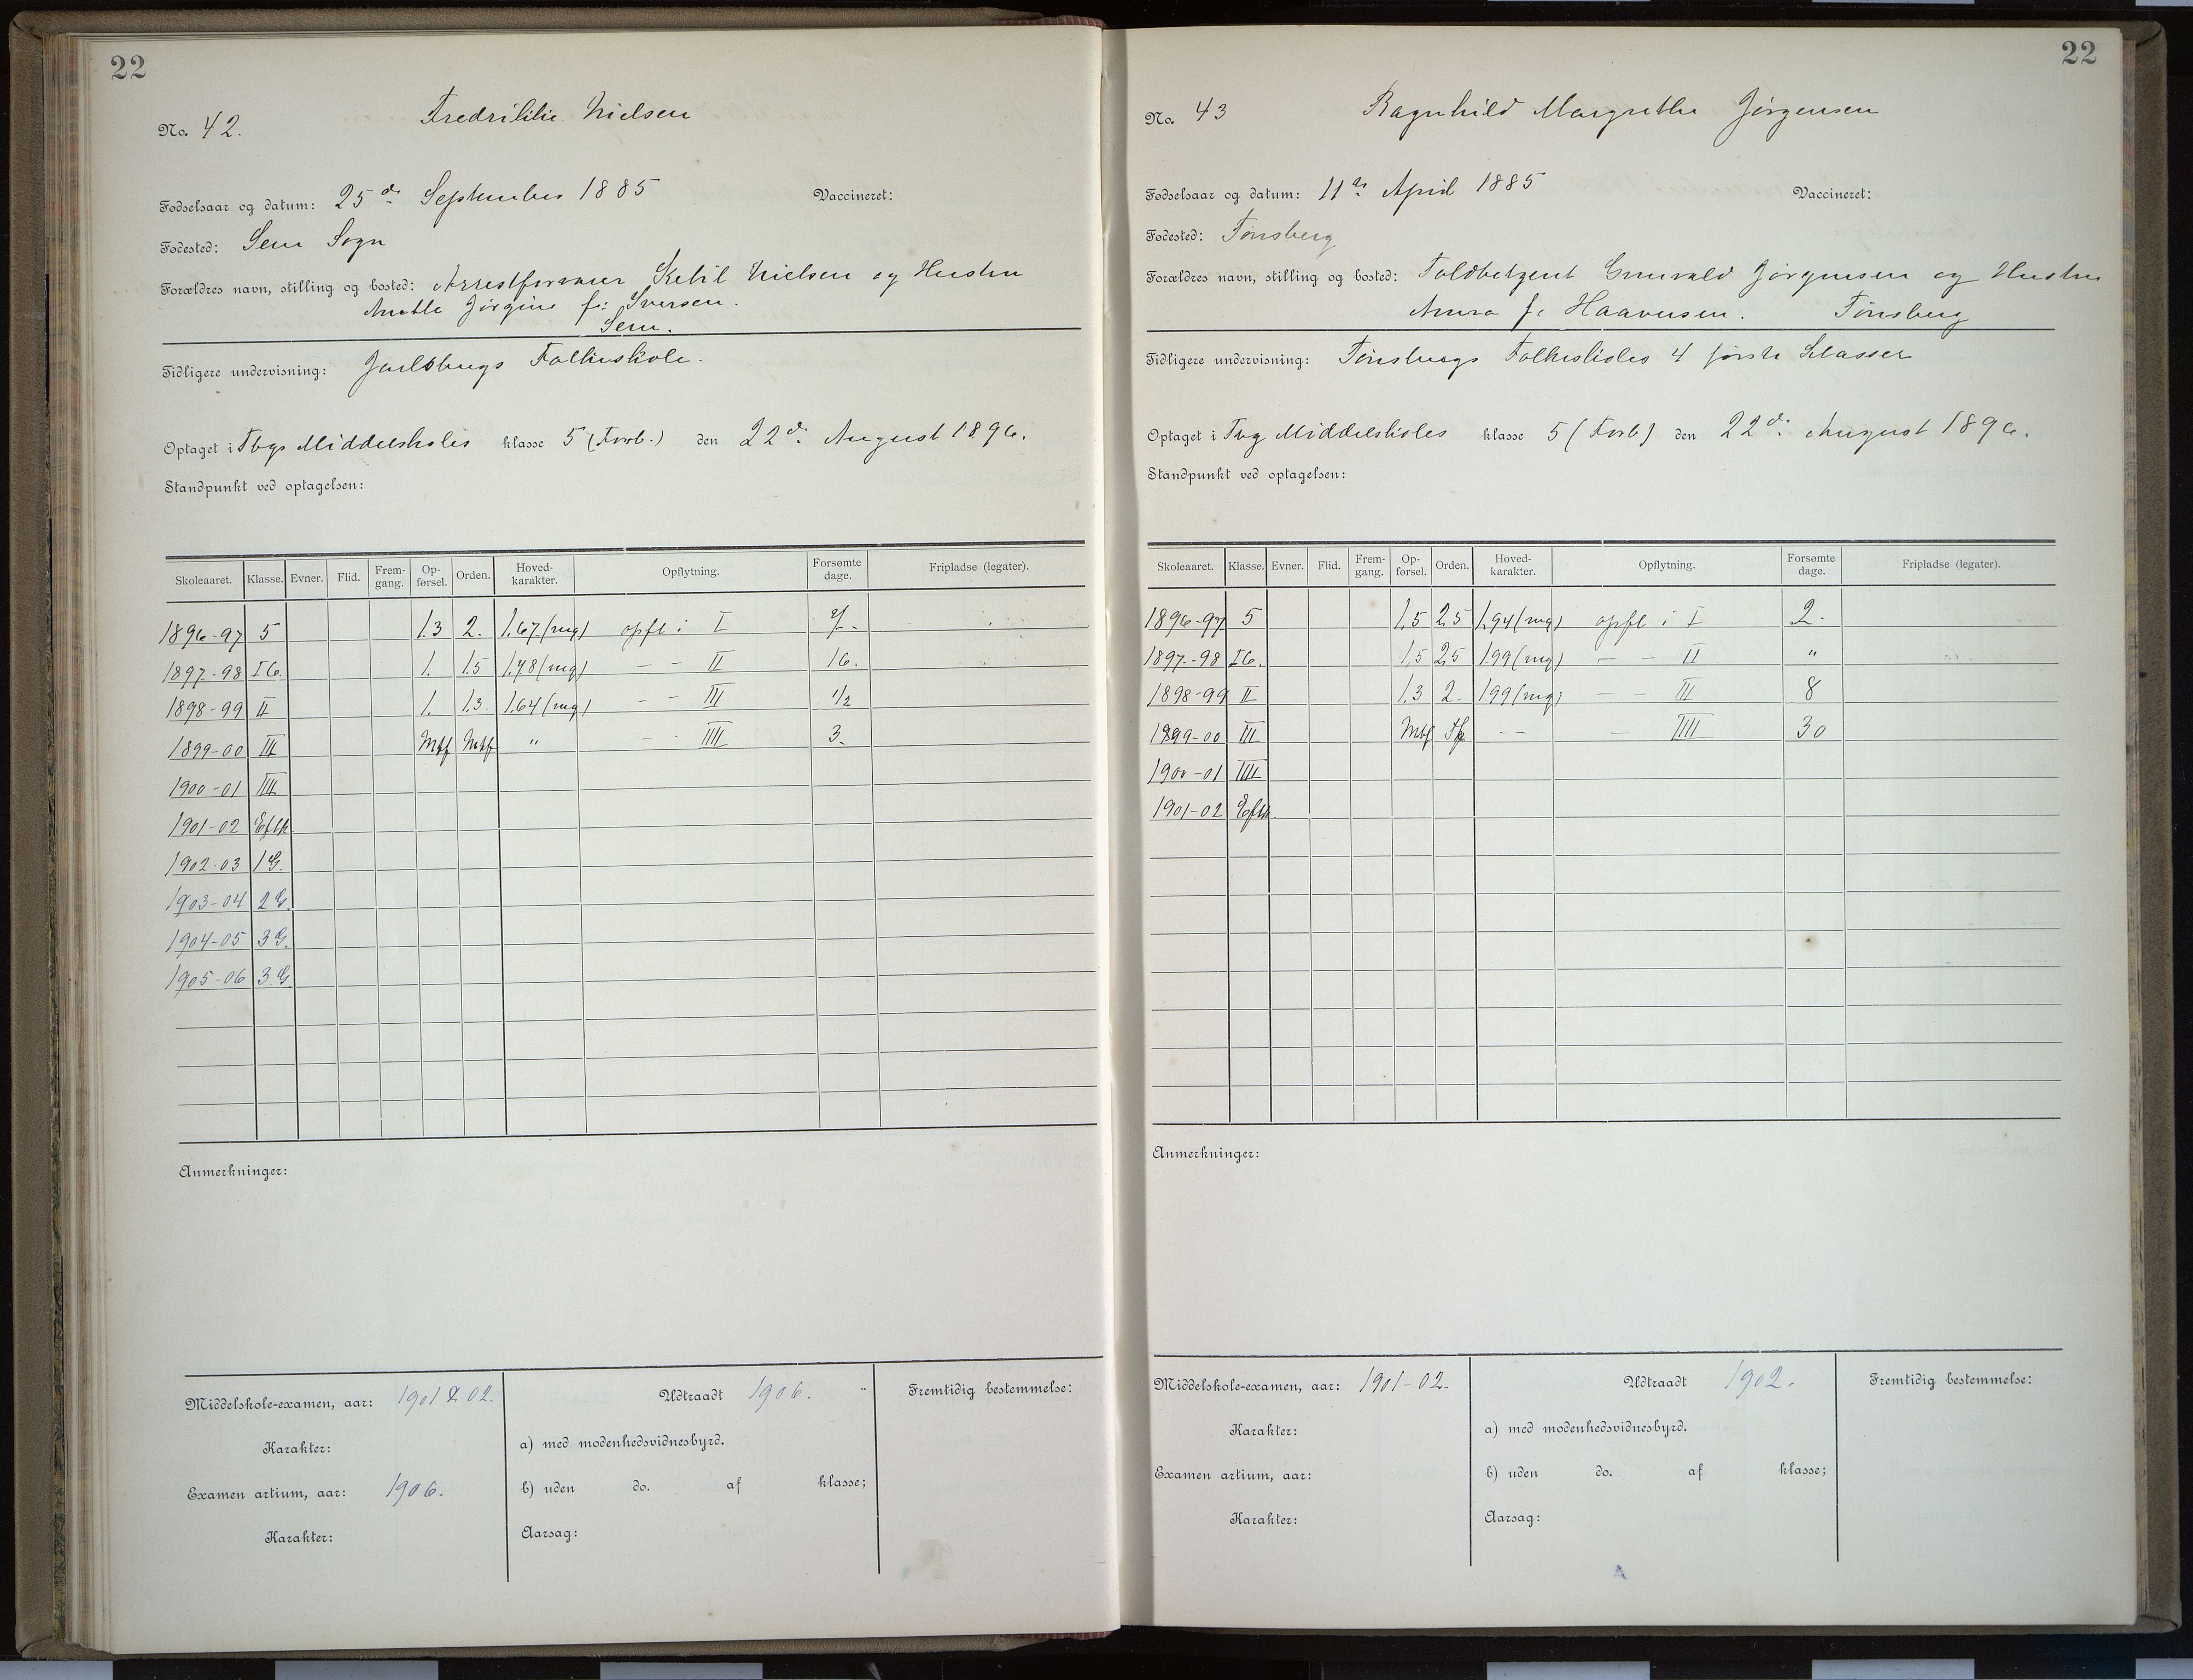 22
No. 42.
Fredrikke Nielsen
Fødselsaar og datum: 25de September 1885 Vaccineret:
Fødested: Sem Sogn
Forældres navn, stilling og bosted: Arrestforvarer Ketil Nielsen og Hustru
Anette Jørgine f: Iversen.
Sem.
Tidligere undervisning: Jarlsbergs Folkeskole.
Optaget i Tbgs Middelskoles klasse 5 (Forb.) den 22de August 1896.
Standpunkt ved optagelsen:
Skoleaaret. Klasse. Evner. Flid. Frem-gang. Op-førsel. Orden. Hoved-karakter. Opflytning. Forsømte dage. Fripladse (legater).
1896-97 5 1.3 2. 1.67 (mg) opfl i I
1897-98 I b. 1. 1.5 1.78 (mg) — — II 16.
1898-99 II 1. 1.3. 1.64 (mg) — — III 1/2
1899-00 III Mtf Mtf " — — IIII 3.
1900-01 IIII
1901-02 Eftk
1902-03 1 G.
1903-04 2 G.
1904-05 3 G.
1905-06 3. G.
Anmerkninger:
Middelskole-examen, aar: 1901 & 02.
Karakter:
Examen artium, aar: 1906.
Karakter:
Udtraadt 1906.
a) med modenhedsvidnesbyrd.
b) uden do. af klasse;
Aarsag:
Fremtidig bestemmelse:
22
No. 43
Ragnhild Margrethe Jørgensen
Fødselsaar og datum: 11te April 1885 Vaccineret:
Fødested: Tønsberg
Forældres navn, stilling og bosted: Toldbetjent Grunvald Jørgensen og Hustru
Anna f. Haaversen. Tønsberg
Tidligere undervisning: Tønsbergs Folkeskoles 4 første Klasser
Optaget i Tbg Middelskoles klasse 5 (Forb) den 22de August 1896.
Standpunkt ved optagelsen:
Skoleaaret. Klasse. Evner. Flid. Frem-gang. Op-førsel. Orden. Hoved-karakter. Opflytning. Forsømte dage. Fripladse (legater).
1896-97 5 1,5 2,5 1,94 (mg) opfl i I 2.
1897-98 I b. 1,5 2,5 1.99 (mg) — — II "
1898-99 II 1,3 2. 1.99 (mg) — — III 8
1899-00 III Mtf — — — IIII 30
1900-01 IIII
1901-02 Eftk.
Anmerkninger:
Middelskole-examen, aar: 1901-02.
Karakter:
Examen artium, aar:
Karakter:
Udtraadt 1902.
a) med modenhedsvidnesbyrd.
b) uden do. af klasse;
Aarsag:
Fremtidig bestemmelse: